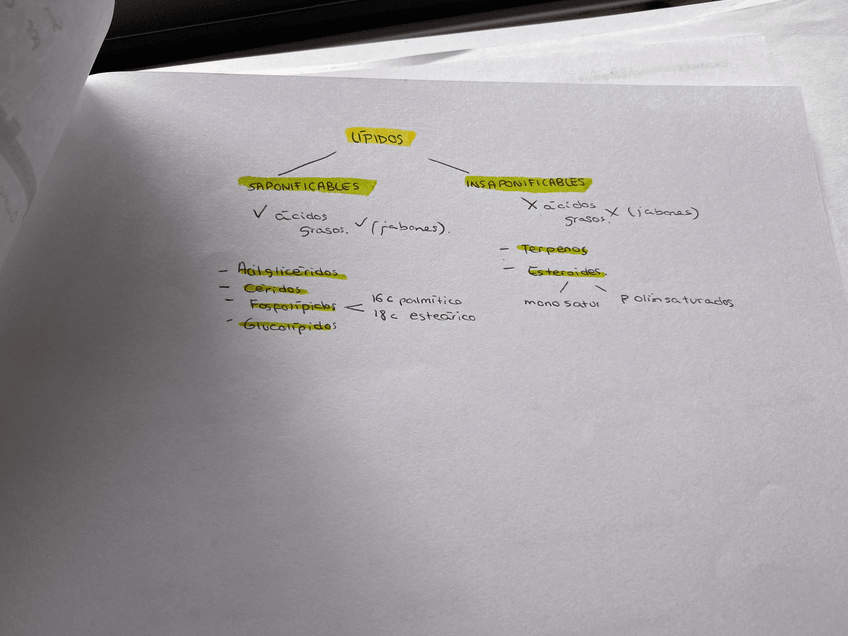 LÍPIDOS
SAPONIFICABLES
✓ ácidos
grasos. ✓ (jabones).
- Acilglicéridos
- Céridos
- Fosfolípidos < 16c palmítico
18c esteárico
- Glucolípidos
INSAPONIFICABLES
X ácidos
grasos. X (jabones)
- Terpenos
- Esteroides
monosatur polinsaturados